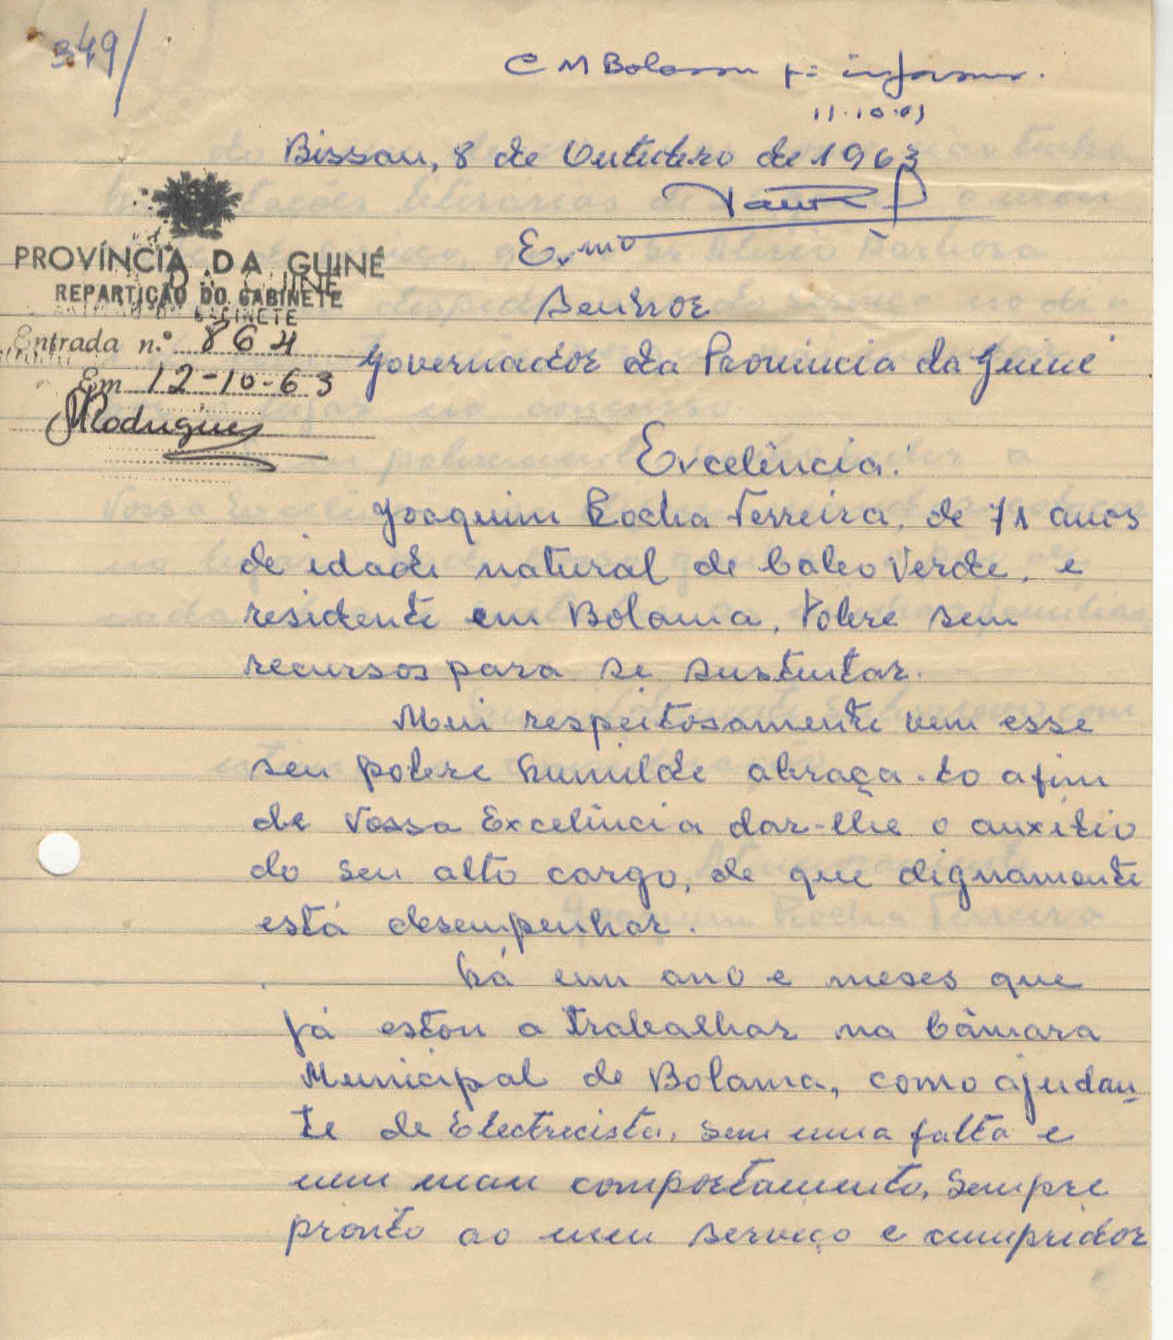 349/
C M Bolama p.ª informar.
11.10.63
Bissau, 8 de Outubro de 1963
Ex.mo
Senhor
PROVÍNCIA DA GUINÉ
REPARTIÇÃO DO GABINETE
Entrada n.º 864
Governador da Provincia da Guiné
Em 12-10-63
Rodrigues
Excelência.
Joaquim Rocha Ferreira, de 71 anos
de idade natural de Cabo Verde, e
residente em Bolama, Pobre sem
recursos para se sustentar.
Mui respeitosamente vem esse
seu pobre humilde abraça-lo afim
de Vossa Excelência dar-lhe o auxilio
do seu alto cargo, de que dignamente
está desempenhar.
há um ano e meses que
já estou a trabalhar na Câmara
Municipal de Bolama, como ajudan-
te de Electricista, sem uma falta e
nem mau comportamento, Sempre
pronto ao meu serviço e cumpridor